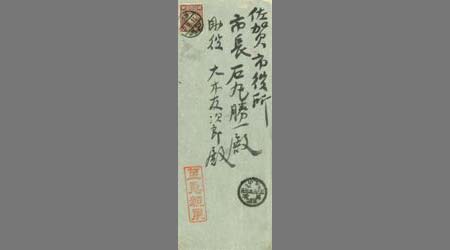 佐賀市役所
市長 石丸勝一殿
助役 大木友次郎殿